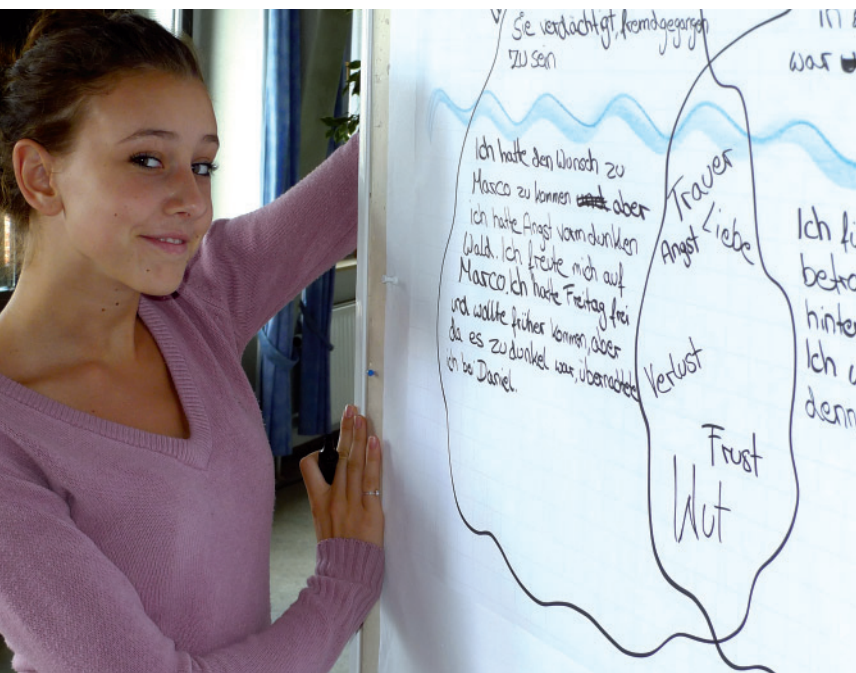 Sie verdächtigt, fremdgegangen
zu sein
war
Ich hatte den Wunsch zu
Marco zu kommen und aber
ich hatte Angst vorm dunklen
Wald. Ich freute mich auf
Marco. Ich hatte Freitag frei
und wollte früher kommen, aber
da es zu dunkel war, übernachtete
ich bei Daniel.
Trauer
Liebe
Angst
Verlust
Frust
Wut
Ich
Ich